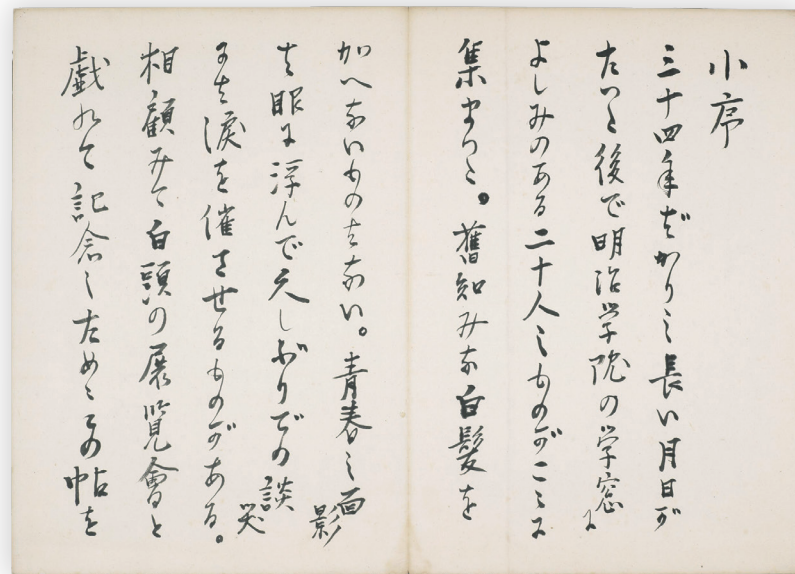 小序
三十四年ばかりの長い月日が
たつた後で明治学院の学窓に
よしみのある二十人のものがこゝに
集まつた。舊知みな白髪を
加へないものはない。青春の面影
は眼に浮んで久しぶりでの談笑
には涙を催させるものがある。
相顧みて白頭の展覧會と
戯れて記念のためにこの帖を